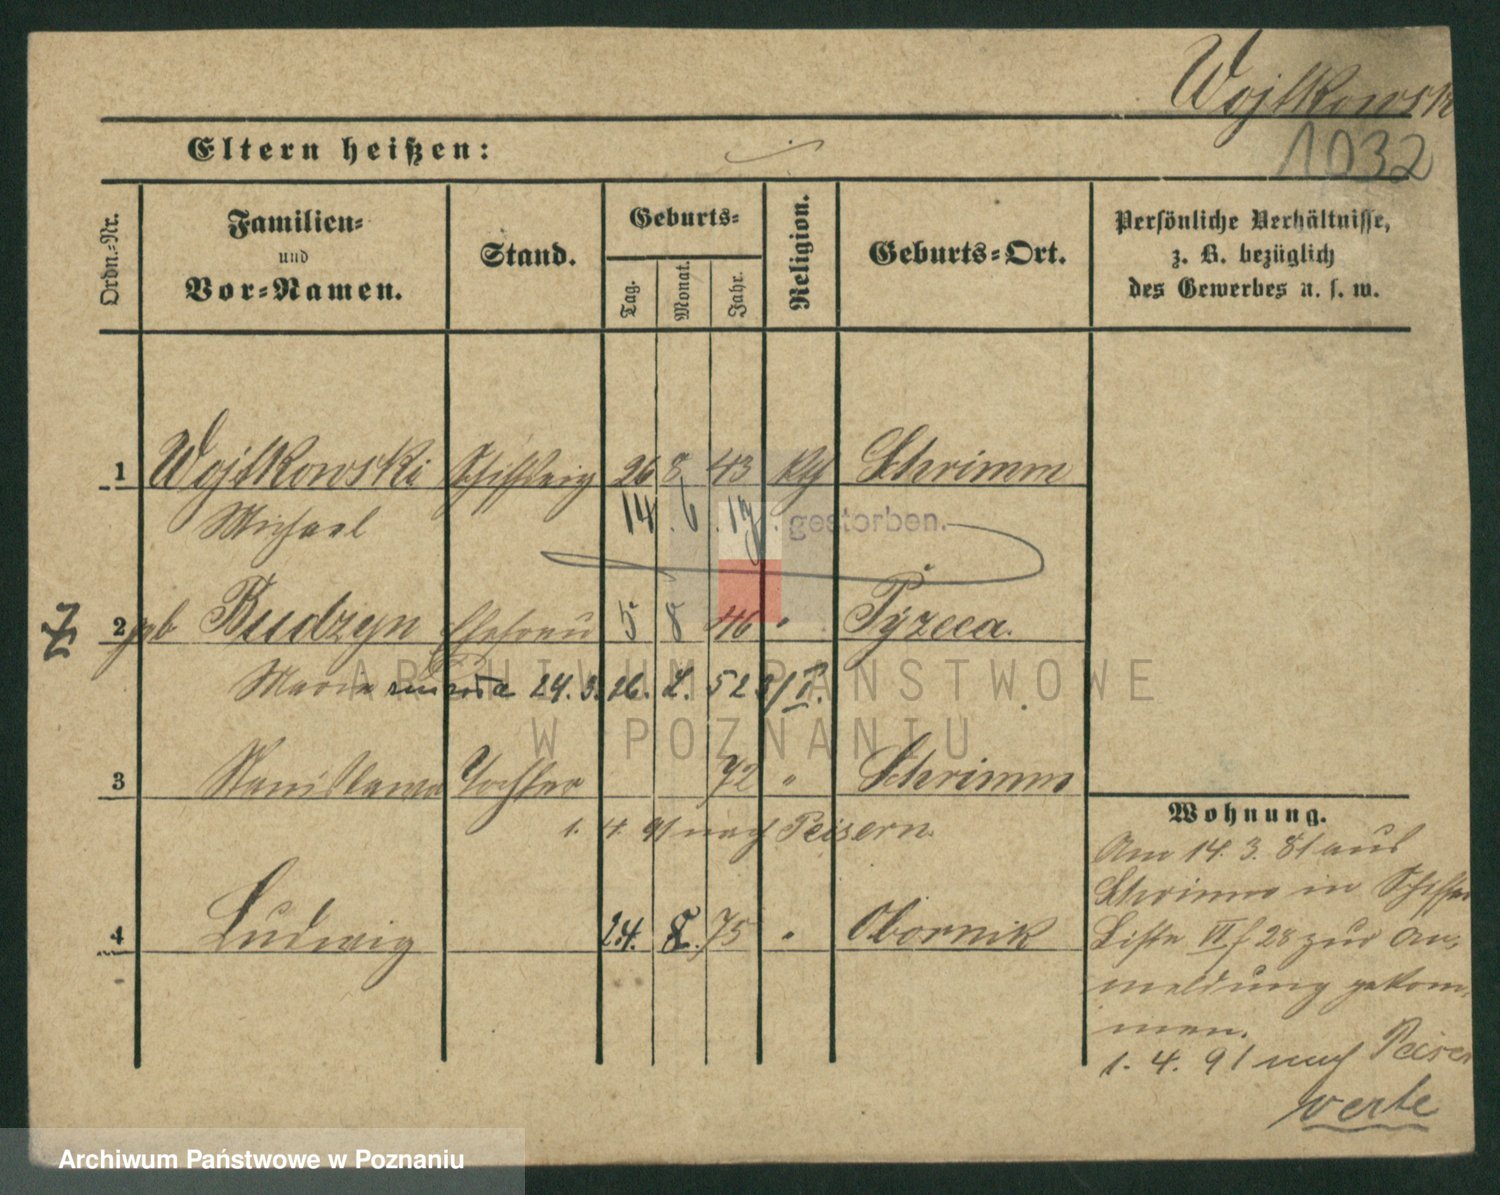 Wojtkowski
1032
Eltern heißen:
Ordn.-Nr.
Familien-
und
Vor-Namen.
Stand.
Geburts-
Tag.
Monat.
Jahr.
Religion.
Geburts-Ort.
Persönliche Verhältnisse,
z. B. bezüglich
des Gewerbes u. s. w.
1 Wojtkowski 26 8 43 Schrimm
Michael 14. 6. 17. gestorben.
2 geb Budzyn Ehefrau 5 8 46 " Pyzeca.
Maria 24. 3. 52
3 Stanislawa Tochter 72 " Schrimm
1. 4. 91 nach Peisern
4 Ludwig 24. 8. 75 " Obornik
Wohnung.
Am 14. 3. 81 aus
Schrimm in Schiffer
Liste VI f 28 zur An-
meldung gekom-
men.
1. 4. 91 nach Peiser
verte
ARCHIWUM PAŃSTWOWE
W POZNANIU
Archiwum Państwowe w Poznaniu